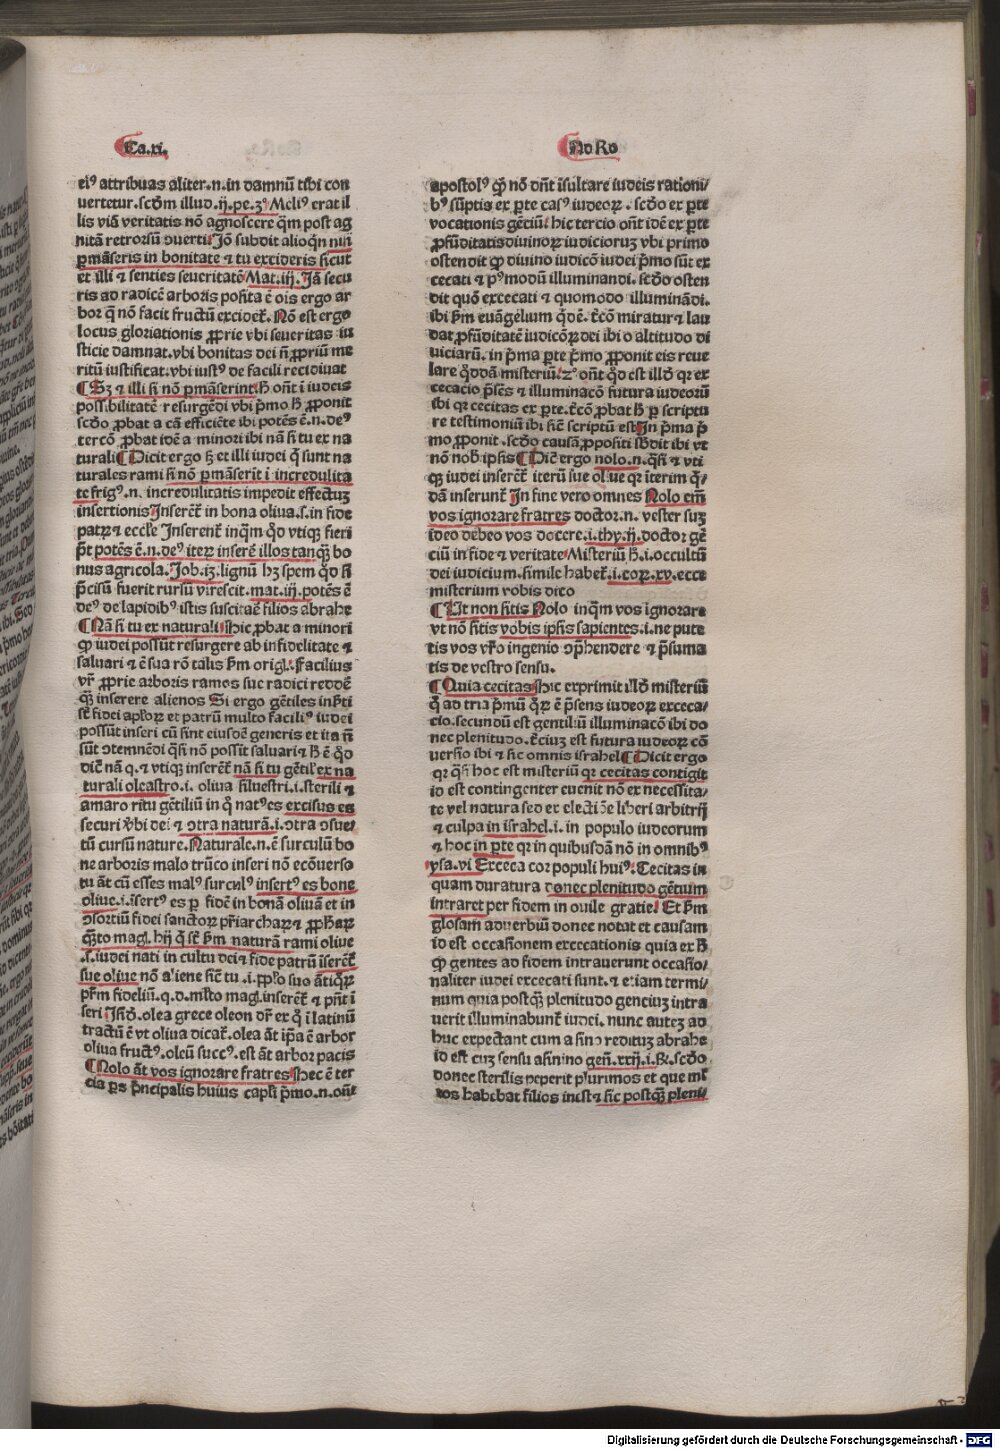 Ca.xi.
Ad Ro
eiꝰ attribuas aliter.n.in damnū tibi con
uertetur.scd̄m illud.ij.pe.3ͦ Meliꝰ erat il
lis viā veritatis nō agnoscere q̄m post ag
nitā retrorsū ꝯuerti Jō subdit alioqn̄ nisi
ꝑmāseris in bonitate ⁊ tu excideris sicut
et illi ⁊ senties seueritatē Mat.iij. Jā secu
ris ad radicē arboris posita ē ois ergo ar
bor q̄ nō facit fructū excidet̄. Nō est ergo
locus gloriationis ꝓprie vbi seueritas iu
sticie damnat.vbi bonitas dei n̄ ꝓpriū me
ritū iustificat.vbi iustꝰ de facili recidiuat
Sꝫ ⁊ illi si nō ꝑmāserint hͨ on̄t i iudeis
possibilitatē resurgēdi vbi p̄mo hͨ ꝓponit
scd̄o ꝓbat a cā efficiēte ibi potēs ē.n.deꝰ
tercō ꝓbat idē a minori ibi nā si tu ex na
turali Dicit ergo sꝫ et illi iudei q̄ sunt na
turales rami si nō ꝑmāserit ī incredulita
te frigꝰ.n. incredulitatis impedit effectuꝫ
insertionis Jnserēt̄ in bona oliua.s.in fide
patꝝ et eccl̄ie Jnserent̄ inq̄m qd̄ vtiqꝫ fieri
pt̄ potēs ē.n.deꝰ iteꝝ inserē illos tanqꝫ̄ bo
nus agricola.Job.iꝫ.lignū hꝫ spem qd̄ si
p̄cisū fuerit rursū virescit.mat.iij.potēs ē
deꝰ de lapidibꝰ istis suscitaē filios abrahe
Nā si tu ex naturali hic ꝓbat a minori
ꝙ iudei possūt resurgere ab infidelitate ⁊
saluari ⁊ ē sua rō talis ẜm origl̄. Facilius
vr̄ ꝓprie arboris ramos sue radici reddē
qꝫ̄ inserere alienos Si ergo gētiles inſti
st̄ fidei apl̄oꝝ et patrū multo faciliꝰ iudei
possūt inseri cū sint eiusdē generis et ita n̄
sūt ꝯtemnēdi qͣsi nō possīt saluari⁊ hͨ ē qd̄
dic̄ nā q̄.⁊ vtiqꝫ inserēt̄ nā si tu gētil̄ex na
turali oleastro.i. oliua siluestri.i.sterili ⁊
amaro ritu gētiliū in q̄ natꝰes excisus es
securi v̄bi dei ⁊ ꝯtra naturā.i.ꝯtra ꝯsue
tū cursū nature.Naturale.n.ē surculū bo
ne arboris malo trūco inseri nō ecōuerso
tu āt cū esses malꝰ surculꝰ insertꝰ es bone
oliue.i.īsertꝰ es ꝑ fidē in bonā oliuā et in
ꝯsortiū fidei sanctoꝝ pr̄iarchaꝝ⁊ ꝓphaꝝ
qꝫ̄to magꝭ.hij q̄ st̄ ẜm naturā rami oliue
.s.iudei nati in cultu dei⁊ fide patrū īserēt̄
sue oliue nō aliene sicut tu .i.ꝓpl̄o suo ātiqͦꝝ
pr̄m fideliū.q.d.ml̄to magꝭ.inserēt̄ ⁊ pn̄t ī
seri Jsid̄.olea grece oleon dr̄ ex q̄ i latinū
tractū ē vt oliua dicat̄.olea āt ip̄a ē arbor
oliua fructꝰ.oleū succꝰ.est āt arbor pacis
Nolo āt vos ignorare fratres Hec ē ter
cia pars p̄ncipalis huius capl̄i p̄mo.n.on̄t
apostolꝰ ꝙ nō dn̄t īsultare iudeis rationi
bꝰ sūptis ex ꝑte casꝰ iudeoꝝ . scd̄o ex ꝑte
vocationis gētiū hic tercio on̄t idē ex ꝑte
ꝓfūditatis diuinoꝝ iudicioruꝫ vbi primo
ostendit ꝙ diuino iudicō iudei p̄mo sūt ex
cecati ⁊ pꝰmodū illuminandi. scd̄o osten
dit quō excecati ⁊ quomodo illuminādi.
ibi ẜm euāgelium qd̄ē. t̄cō miratur⁊ lau
dat ꝓfūditatē iudicōꝝ dei ibi o altitudo di
uiciarū. in p̄ma ꝑte p̄mo ꝓponit eis reue
lare qͦddā misteriū.2ͦ on̄t qd̄ est illd̄ qꝛ ex
cecacio p̄sēs ⁊ illuminacō futura iudeorū
ibi qꝛ cecitas ex ꝑte.t̄cō ꝓbat hͨ ꝑ scriptu
re testimoniū ibi sic̄ scriptū est Jn p̄ma p̄
mo ꝓponit .scd̄o causā ꝓpositi sb̄dit ibi vt
nō nob̄ ipsis Dic̄ ergo nolo.n.qͣsi ⁊ vti
qꝫ iudei inserēt̄ iterū sue oliue qꝛ iterim qͥ
dā inserunt̄ Jn fine vero omnes Nolo em̄
vos ignorare fratres doctor.n. vester suꝫ
ideo debeo vos docere.i.thy.ij.doctor gē
ciū in fide ⁊ veritate Misteriū hͨ.i.occultū
dei iudicium.simile habet̄.i.coꝝ.xv.ecce
misterium vobis dico
Ut non sitis Nolo inqͣm vos ignorare
vt nō sitis vobis ipsis sapientes.i.ne pute
tis vos vr̄o ingenio ꝯp̄hendere ⁊ p̄suma
tis de vestro sensu.
Quia cecitas Hic exprimit illd̄ misteriū
q̄ ad tria p̄mū qͦꝝ ē p̄sens iudeoꝝ exceca
cio.secundū est gentiliū illuminacō ibi do
nec plenitudo.t̄ciuꝫ est futura iudeoꝝ cō
uersio ibi ⁊ sic omnis israhel Dicit ergo
qꝛ qͣsi hoc est misteriū qꝛ cecitas contigit
id est contingenter euenit nō ex necessita
te vel natura sed ex electiōe liberi arbitrij
⁊ culpa in israhel.i. in populo iudeorum
⁊ hoc in ꝑte qꝛ in quibusdā nō in omnibꝰ
ysa.vi Exceca cor populi huiꝰ Cecitas in
quam duratura donec plenitudo gētium
intraret per fidem in ouile gratie. Et ẜm
glosam aduerbiū donec notat et causam
id est occasionem excecationis quia ex hͨ
ꝙ gentes ad fidem intrauerunt occasio
naliter iudei excecati sunt. ⁊ etiam termi
num quia postqꝫ̄ plenitudo genciuꝫ intra
uerit illuminabunt̄ iudei. nunc auteꝫ ad
huc expectant cum asino redituꝫ abrahe
id est cuꝫ sensu asinino gen̄.xxij.i.R̄.scd̄o
donec sterilis peperit plurimos et que ml̄
tos habebat filios ⁊ sic postqꝫ̄ pleni